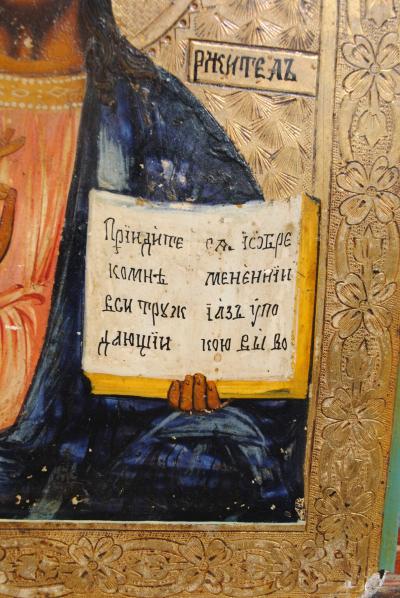 РЖИТЕЛЬ
Прїидите
комнѣ
вси труж
дающїи
сѧ їѡбре
мененнїи
їазъ ўпо
кою вы во